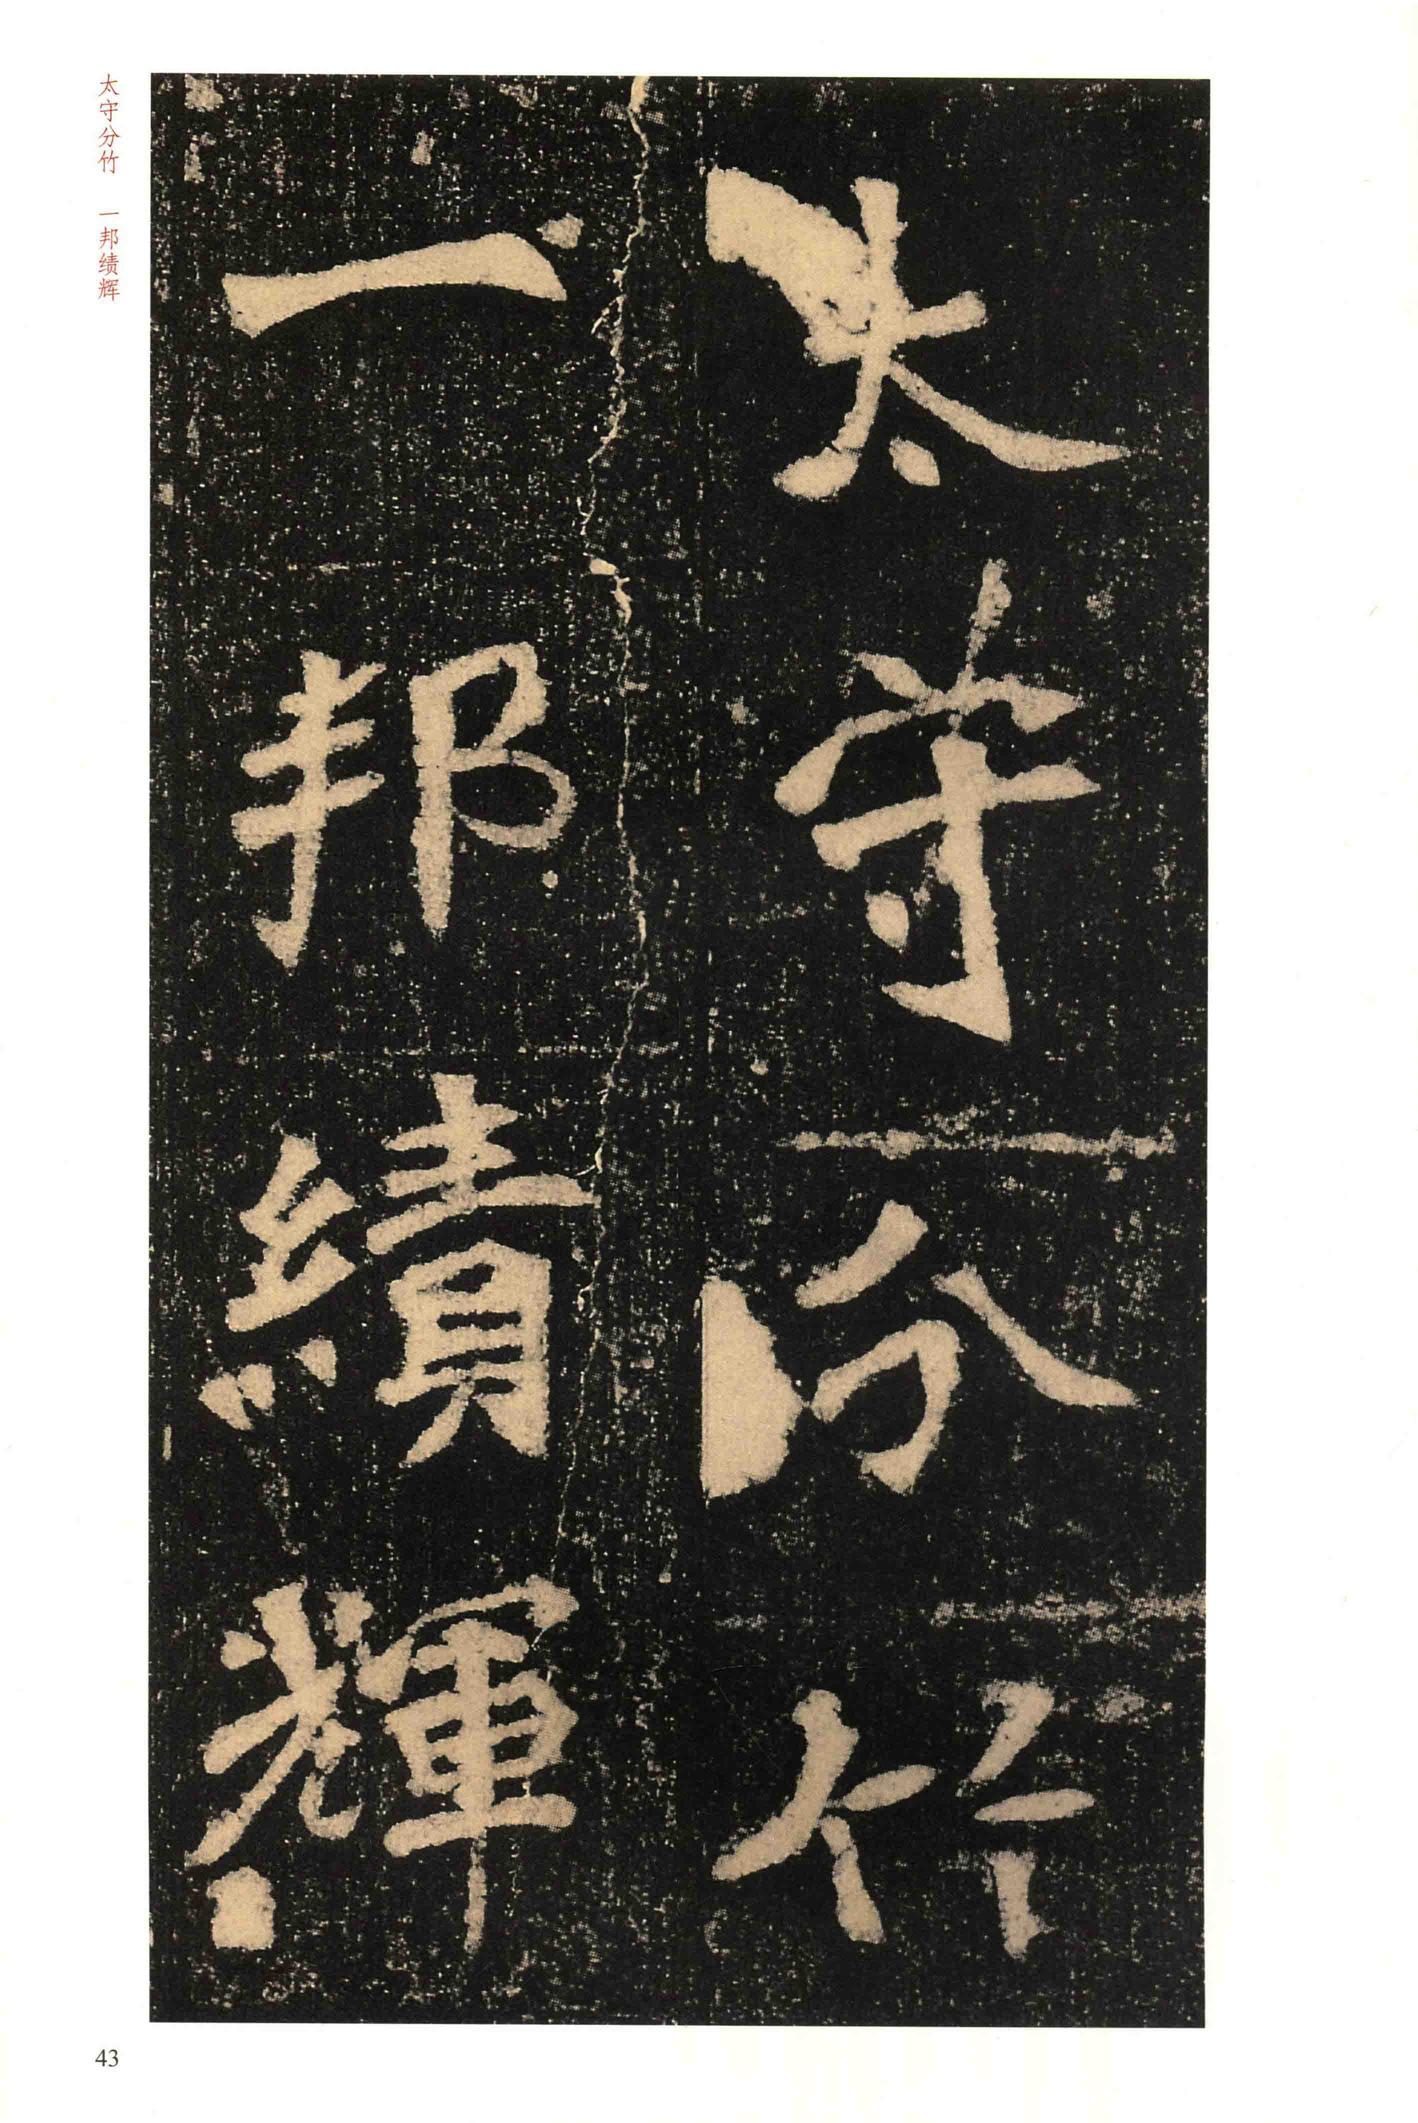 太守分竹
一邦績輝
太守分竹 一邦绩辉
43